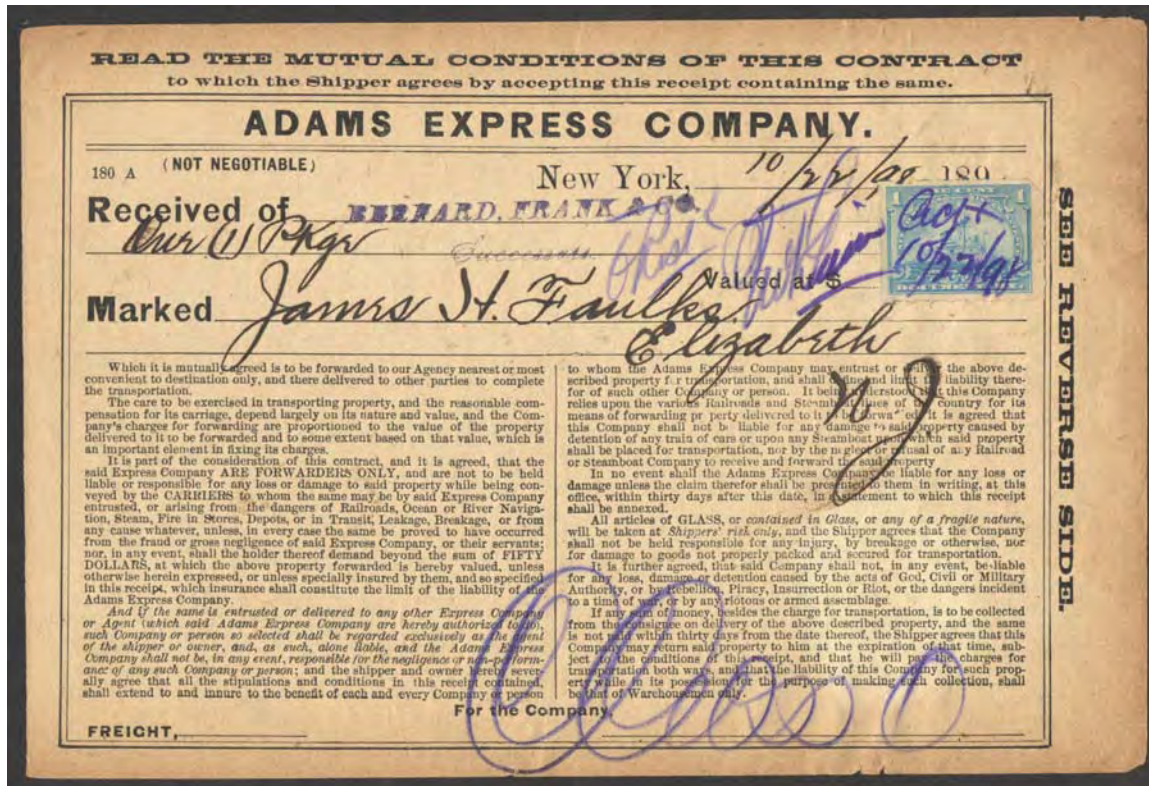 READ THE MUTUAL CONDITIONS OF THIS CONTRACT
to which the Shipper agrees by accepting this receipt containing the same.
ADAMS EXPRESS COMPANY.
180 A (NOT NEGOTIABLE)
New York, 10/22/98 189
Received of BERNARD, FRANK & CO.
One (1) Pkge
Successors.
Valued at $
Marked James H. Faulks
Elizabeth
NJ
Oct
10/22/98
Which it is mutually agreed is to be forwarded to our Agency nearest or most
convenient to destination only, and there delivered to other parties to complete
the transportation.
The care to be exercised in transporting property, and the reasonable com-
pensation for its carriage, depend largely on its nature and value, and the Com-
pany's charges for forwarding are proportioned to the value of the property
delivered to it to be forwarded and to some extent based on that value, which is
an important element in fixing its charges.
It is part of the consideration of this contract, and it is agreed, that the
said Express Company ARE FORWARDERS ONLY, and are not to be held
liable or responsible for any loss or damage to said property while being con-
veyed by the CARRIERS to whom the same may be by said Express Company
entrusted, or arising from the dangers of Railroads, Ocean or River Naviga-
tion, Steam, Fire in Stores, Depots, or in Transit, Leakage, Breakage, or from
any cause whatever, unless, in every case the same be proved to have occurred
from the fraud or gross negligence of said Express Company, or their servants;
nor, in any event, shall the holder thereof demand beyond the sum of FIFTY
DOLLARS, at which the above property forwarded is hereby valued, unless
otherwise herein expressed, or unless specially insured by them, and so specified
in this receipt, which insurance shall constitute the limit of the liability of the
Adams Express Company.
And if the same is entrusted or delivered to any other Express Company
or Agent (which said Adams Express Company are hereby authorized to do),
such Company or person so selected shall be regarded exclusively as the agent
of the shipper or owner, and, as such, alone liable, and the Adams Express
Company shall not be, in any event, responsible for the negligence or non-perform-
ance of any such Company or person; and the shipper and owner hereby sever-
ally agree that all the stipulations and conditions in this receipt contained,
shall extend to and innure to the benefit of each and every Company or person
to whom the Adams Express Company may entrust or deliver the above de-
scribed property for transportation, and shall define and limit the liability there-
for of such other Company or person. It being understood that this Company
relies upon the various Railroads and Steamboat lines of the country for its
means of forwarding property delivered to it to be forwarded, it is agreed that
this Company shall not be liable for any damage to said property caused by
detention of any train of cars or upon any Steamboat upon which said property
shall be placed for transportation, nor by the neglect or refusal of any Railroad
or Steamboat Company to receive and forward the said property
In no event shall the Adams Express Company be liable for any loss or
damage unless the claim therefor shall be presented to them in writing, at this
office, within thirty days after this date, in a statement to which this receipt
shall be annexed.
All articles of GLASS, or contained in Glass, or any of a fragile nature,
will be taken at Shippers' risk only, and the Shipper agrees that the Company
shall not be held responsible for any injury, by breakage or otherwise, nor
for damage to goods not properly packed and secured for transportation.
It is further agreed, that said Company shall not, in any event, be liable
for any loss, damage or detention caused by the acts of God, Civil or Military
Authority, or by Rebellion, Piracy, Insurrection or Riot, or the dangers incident
to a time of war, or by any riotous or armed assemblage.
If any sum of money, besides the charge for transportation, is to be collected
from the consignee on delivery of the above described property, and the same
is not paid within thirty days from the date thereof, the Shipper agrees that this
Company may return said property to him at the expiration of that time, sub-
ject to the conditions of this receipt, and that he will pay the charges for
transportation both ways, and that the liability of this Company for such prop-
erty while in its possession for the purpose of making such collection, shall
be that of Warehousemen only.
For the Company,
FREIGHT,
SEE REVERSE SIDE.